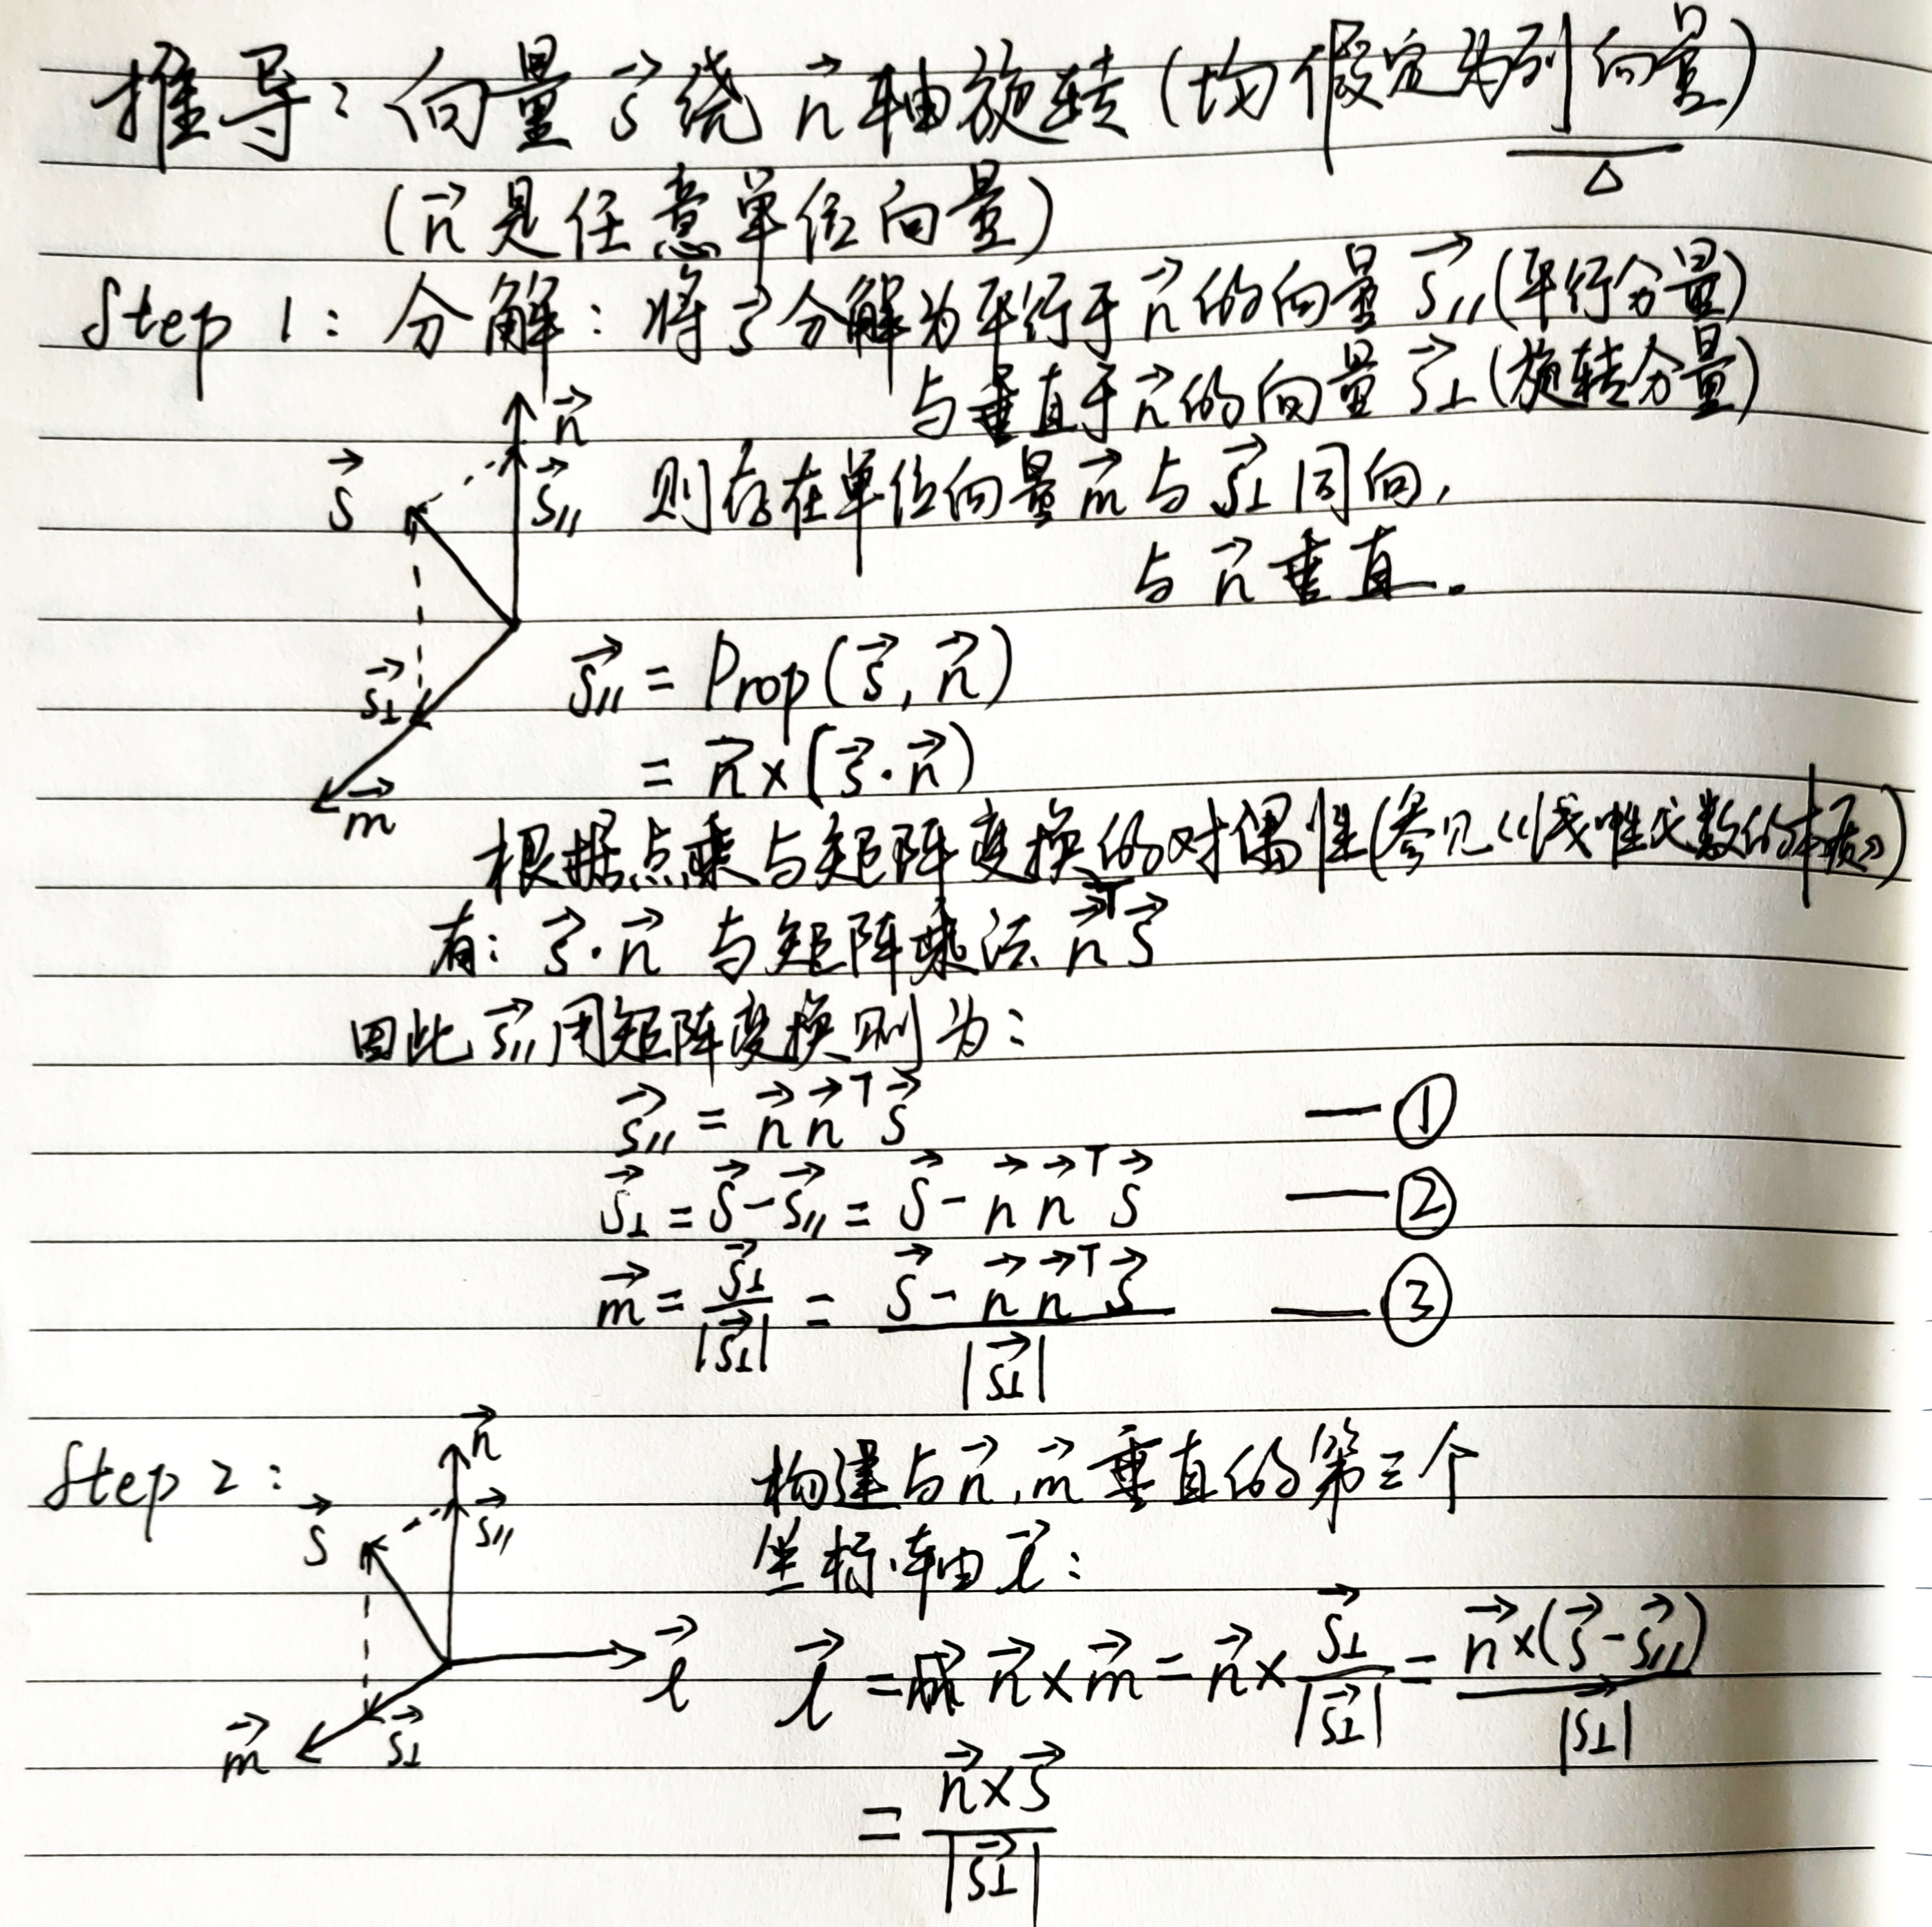 推导：向量 s⃗ 绕 n⃗ 轴旋转 (均假定为列向量)
(n⃗ 是任意单位向量)
Step 1: 分解：将 s⃗ 分解为平行于 n⃗ 的向量 s⃗// (平行分量)
与垂直于 n⃗ 的向量 s⃗⊥ (旋转分量)
n⃗
s⃗
s⃗//
则存在单位向量 m⃗ 与 s⃗⊥ 同向,
与 n⃗ 垂直.
s⃗⊥
m⃗
s⃗// = Prop(s⃗, n⃗)
= n⃗×(s⃗·n⃗)
根据点乘与矩阵变换的对偶性(参见《线性代数的本质》)
有: s⃗·n⃗ 与矩阵乘法 n⃗ᵀs⃗
因此 s⃗// 用矩阵变换则为：
s⃗// = n⃗n⃗ᵀs⃗ —①
s⃗⊥ = s⃗-s⃗// = s⃗-n⃗n⃗ᵀs⃗ —②
m⃗ = s⃗⊥/|s⃗⊥| = (s⃗-n⃗n⃗ᵀs⃗)/|s⃗⊥| —③
Step 2:
n⃗
s⃗
s⃗//
l⃗
m⃗
s⃗⊥
构建与 n⃗, m⃗ 垂直的第三个
坐标轴 l⃗：
l⃗ = n⃗×m⃗ = n⃗×s⃗⊥/|s⃗⊥| = n⃗×(s⃗-s⃗//)/|s⃗⊥|
= n⃗×s⃗/|s⃗⊥|